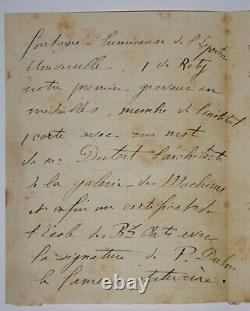 fontaine lumineuse de l'Exposition
Universelle. 1 de Roty
notre premier graveur en
médailles, membre de l'institut
1 carte avec un mot
de Mr Dutert l'architecte
de la galerie des Machines
et enfin un certificat de
l'Ecole des Bx Arts avec
la signature de P. Dubois
le fameux statuaire.
© ticata.com